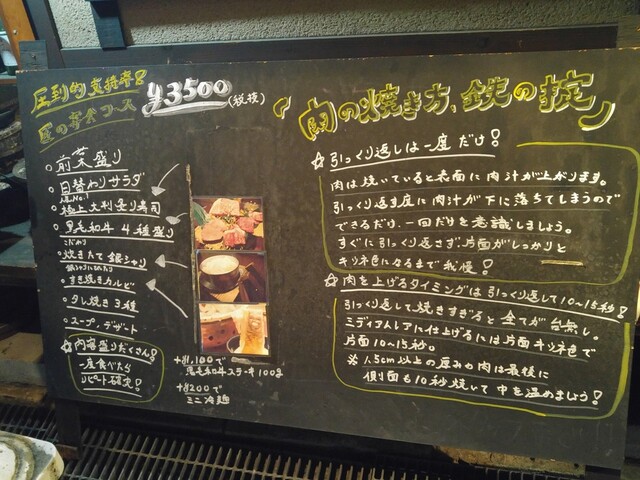 圧倒的支持率!
匠の宴会コース
¥3500
(税抜)
前菜盛り
日替わりサラダ
人気No.1
極上大判炙り寿司
黒毛和牛4種盛り
こだわり
炊きたて銀シャリ
すき焼きカルビ
タレ焼き3種
スープ、デザート
☆内容盛りだくさん!
一度食べたら
リピート確実!
+¥1,100で
黒毛和牛ステーキ100g
+¥200で
ミニ冷麺
「肉の焼き方、鉄の掟」
☆引っくり返しは一度だけ!
肉は焼いていると表面に肉汁が上がります。
引っくり返す度に肉汁が下に落ちてしまうので
できるだけ、一回だけを意識しましょう。
すぐに引っくり返さず、片面がしっかりと
キツネ色になるまで我慢!
☆肉を上げるタイミングは引っくり返して10~15秒!
引っくり返して焼きすぎると全てが台無し。
ミディアムレアに仕上げるには片面キツネ色で
片面10~15秒。
※1.5cm以上の厚みの肉は最後に
側面も10秒焼いて中を温めましょう!